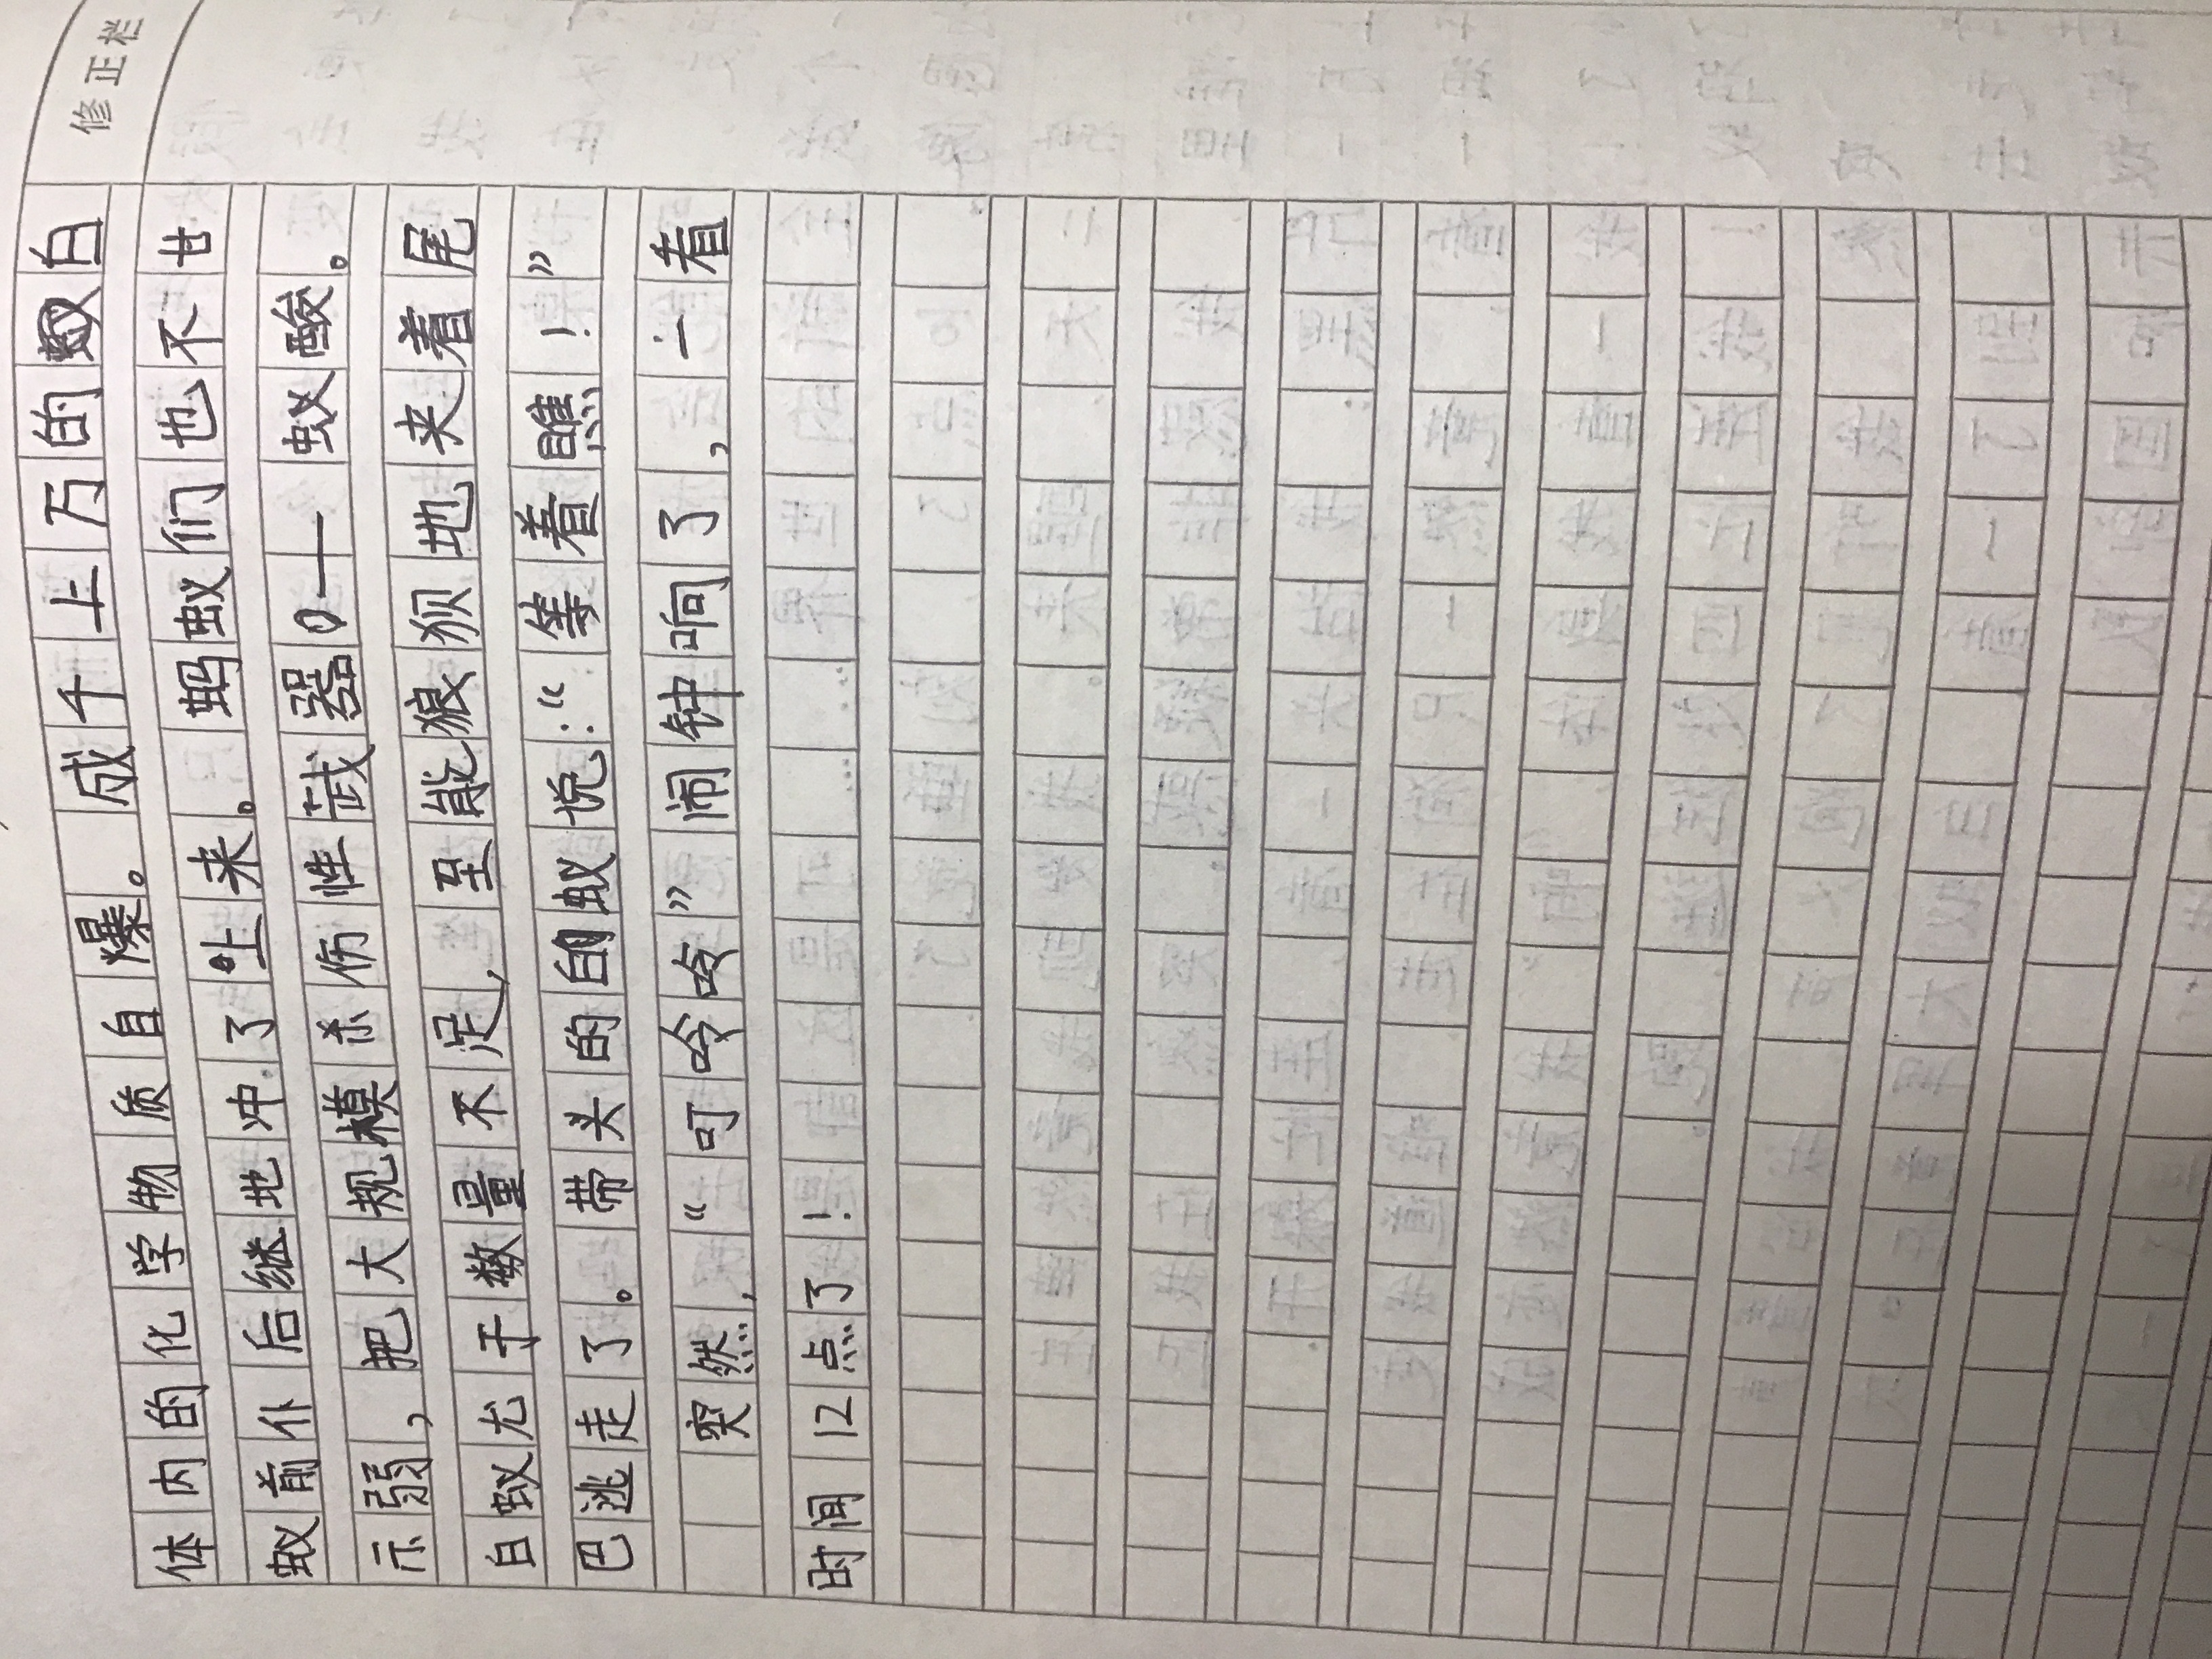 修正栏
体内的化学物质自爆。成千上万的白
蚁前仆后继地冲了上来。蚂蚁们也不甘
示弱,把大规模杀伤性武器——蚁酸。
白蚁尤于数量不足,至能狼狈地夹着尾
巴逃走了。带头的白蚁说:“等着瞧!”
突然,“叮呤呤”闹钟响了,一看
时间12点了!